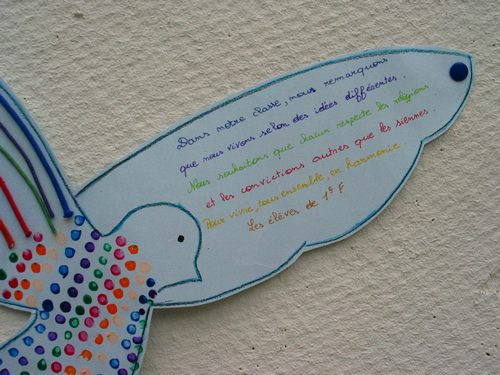 Dans notre classe, nous remarquons
que nous vivons selon des idées différentes.
Nous souhaitons que chacun respecte les religions
et les convictions autres que les siennes.
Pour vivre, tous ensemble, en harmonie.
Les élèves de 1e F